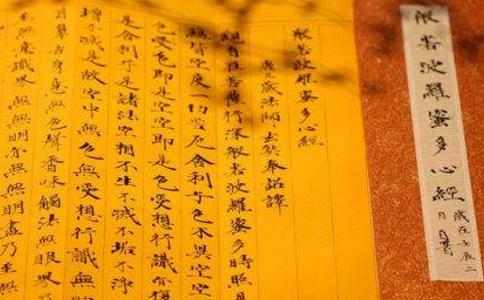 般若波羅蜜多心經
歲在壬辰二
月日
般若波羅蜜多心經
唐三藏法師玄奘奉詔譯
觀自在菩薩行深般若波羅蜜多時照見
蘊皆空度一切苦厄舍利子色不異空空
異色色即是空空即是色受想行識亦復
是舍利子是諸法空相不生不滅不垢不淨
增不減是故空中無色無受想行識無眼
耳鼻舌身意無色聲香味觸法無眼界乃
至無意識界無無明亦無無明盡乃至無